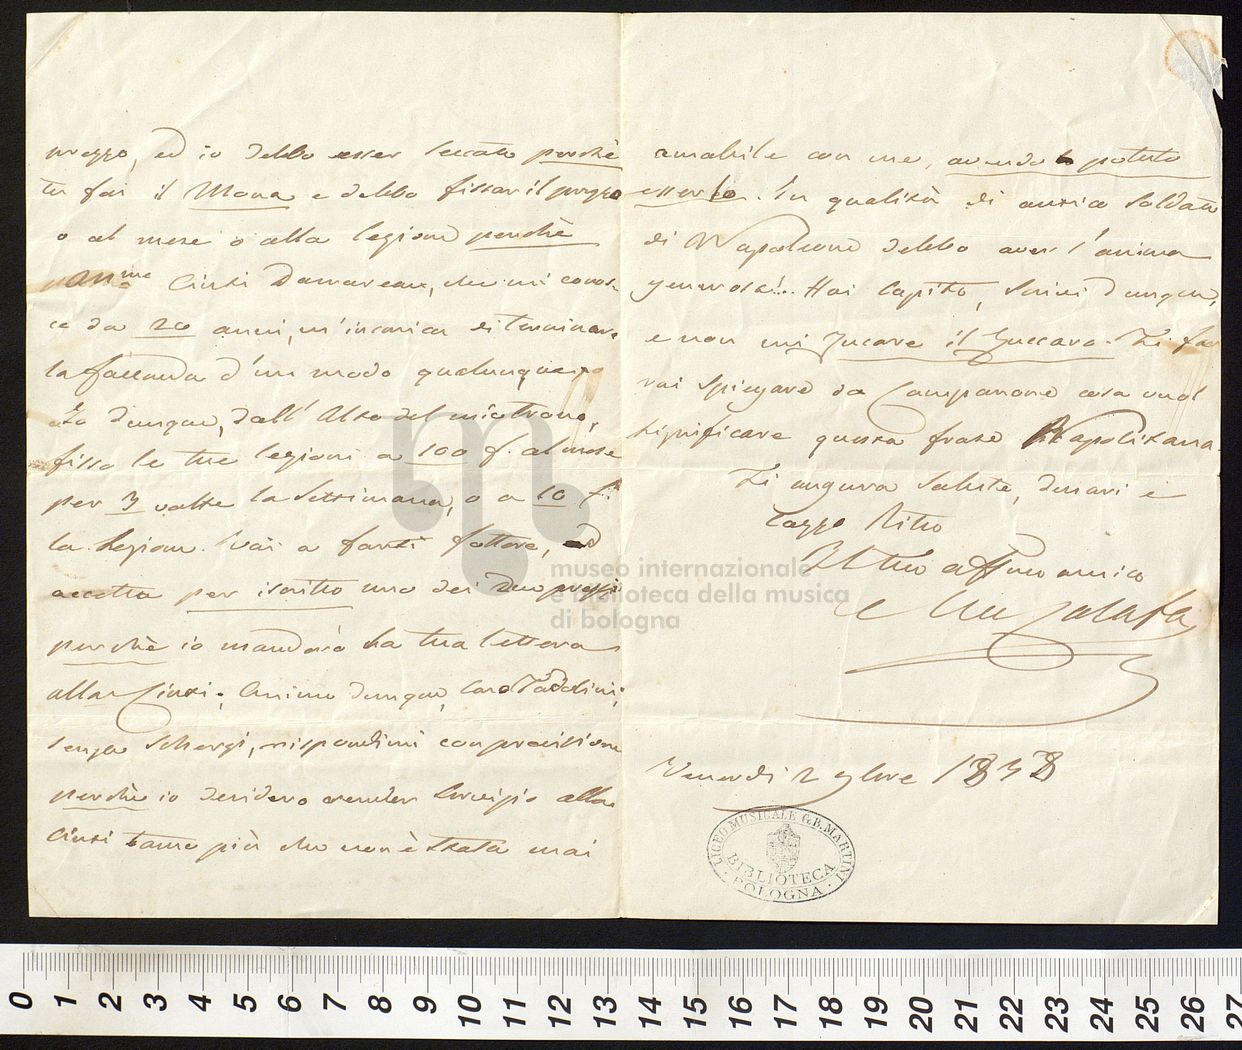 prezzo, ed io debbo esser seccato perchè
tu fai il Mona e debbo fissar il prezzo
o al mese o alla lezione perchè
Cinti Damoreau, che mi conos-
ce da 20 anni, m'incarica di terminare
la faccenda d'un modo qualunque
Io dunque, dall'Alto del mio trono,
fisso le tue lezioni a 100 f. al mese
per 3 volte la settimana, o a 10 f.
la lezione. Vai a farti fottere, ed
accetta per iscritto uno dei due prezzi
perchè io manderò la tua lettera
alla Cinti; Animo dunque, Caro Tadolini,
senza scherzi, rispondimi con precisione
perchè io desidero render servigio alla
Cinti tanto più che non è stata mai
amabile con me, avendo potuto
esserlo. In qualità di antico soldato
di Napoleone debbo aver l'anima
generosa!.. Hai capito, scrivi dunque,
e non mi zucare il zuccaro. Ti fa-
rai spiegare da Campanone cosa vuol
significare questa frase Napolitana.
Ti auguro salute, denari e
cazzo ritto
Il tuo affmo amico
Venerdì 2 9bre 1838
LICEO MUSICALE G.B. MARTINI
BIBLIOTECA
BOLOGNA
museo internazionale
e biblioteca della musica
di bologna
0 1 2 3 4 5 6 7 8 9 10 11 12 13 14 15 16 17 18 19 20 21 22 23 24 25 26 27